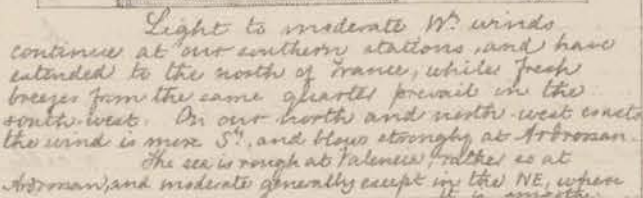 Light to moderate Wly. winds
continue at our southern stations, and have
extended to the north of France, while fresh
breezes from the same quarter prevail in the
south-west. On our north and north-west coasts
the wind is more Sly., and blows strongly at Ardrossan.
The sea is rough at Valencia, rather so at
Ardrossan, and moderate generally except in the NE, where
it is smooth.